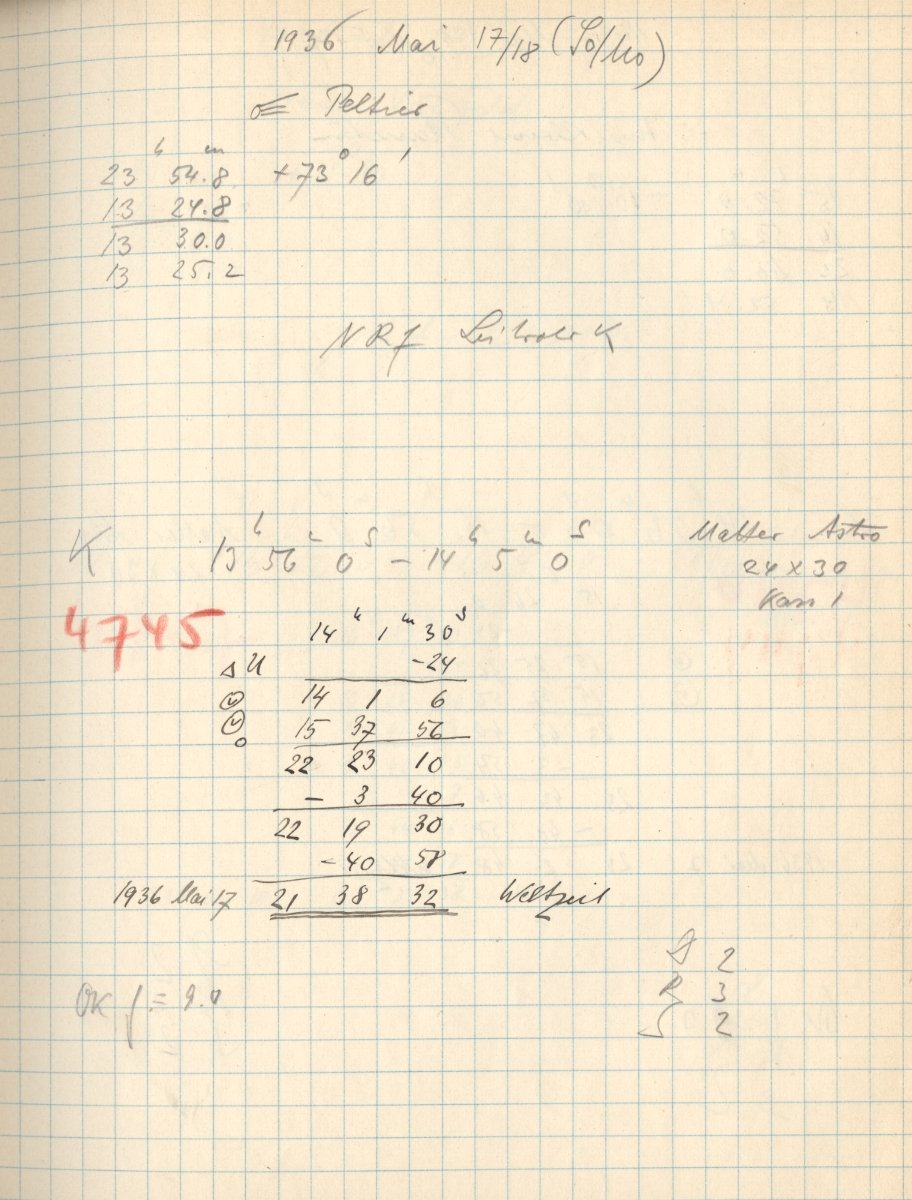 1936 Mai 17/18 (So/Mo)
☄ Peltier
23ʰ 54.8ᵐ +73° 16'
13 24.8
13 30.0
13 25.2
NR 7 K
K 13ʰ 56ᵐ 0ˢ – 14ʰ 5ᵐ 0ˢ
Matter Astro
24 x 30
Kass 1
4745
14ʰ 1ᵐ 30ˢ
ΔU -24
14 1 6
15 37 56
22 23 10
– 3 40
22 19 30
-40 58
1936 Mai 17 21 38 32 Weltzeit
2
R 3
2
OK f = 9.0